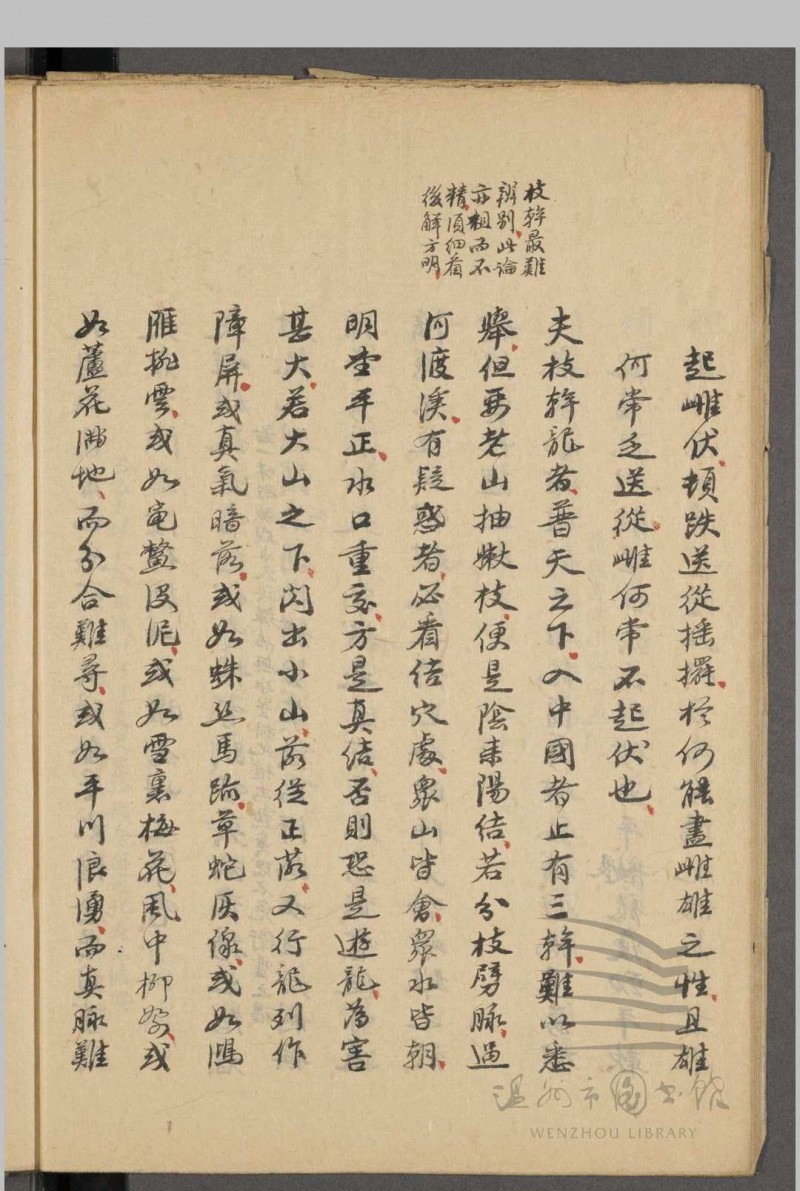 枝幹最難
辨別此論
亦粗而不
精須細看
後解方明
起雌伏頓跌送從揺擺於何能盡雌雄之性且雄
何常乏送從雌何常不起伏也
夫枝幹龍者普天之下入中國者止有三幹難以悉
舉但要老山抽嫩枝便是陰來陽結若分枝劈脉過
河渡溪有疑惑者必看結穴處衆山皆會衆水皆朝
明堂平正水口重交方是真結否則恐是遊龍為害
甚大若大山之下閃出小山落從正落又行龍列作
障屏或真氣暗落或如蛛丝馬跡草蛇灰線或如鴻
雁挑雲或如黿鼈沒泥或如雪裏梅花風中柳絮或
如蘆花滿地而分合難尋或如平川浪湧而真脉難
温州市圖书館
WENZHOU LIBRARY